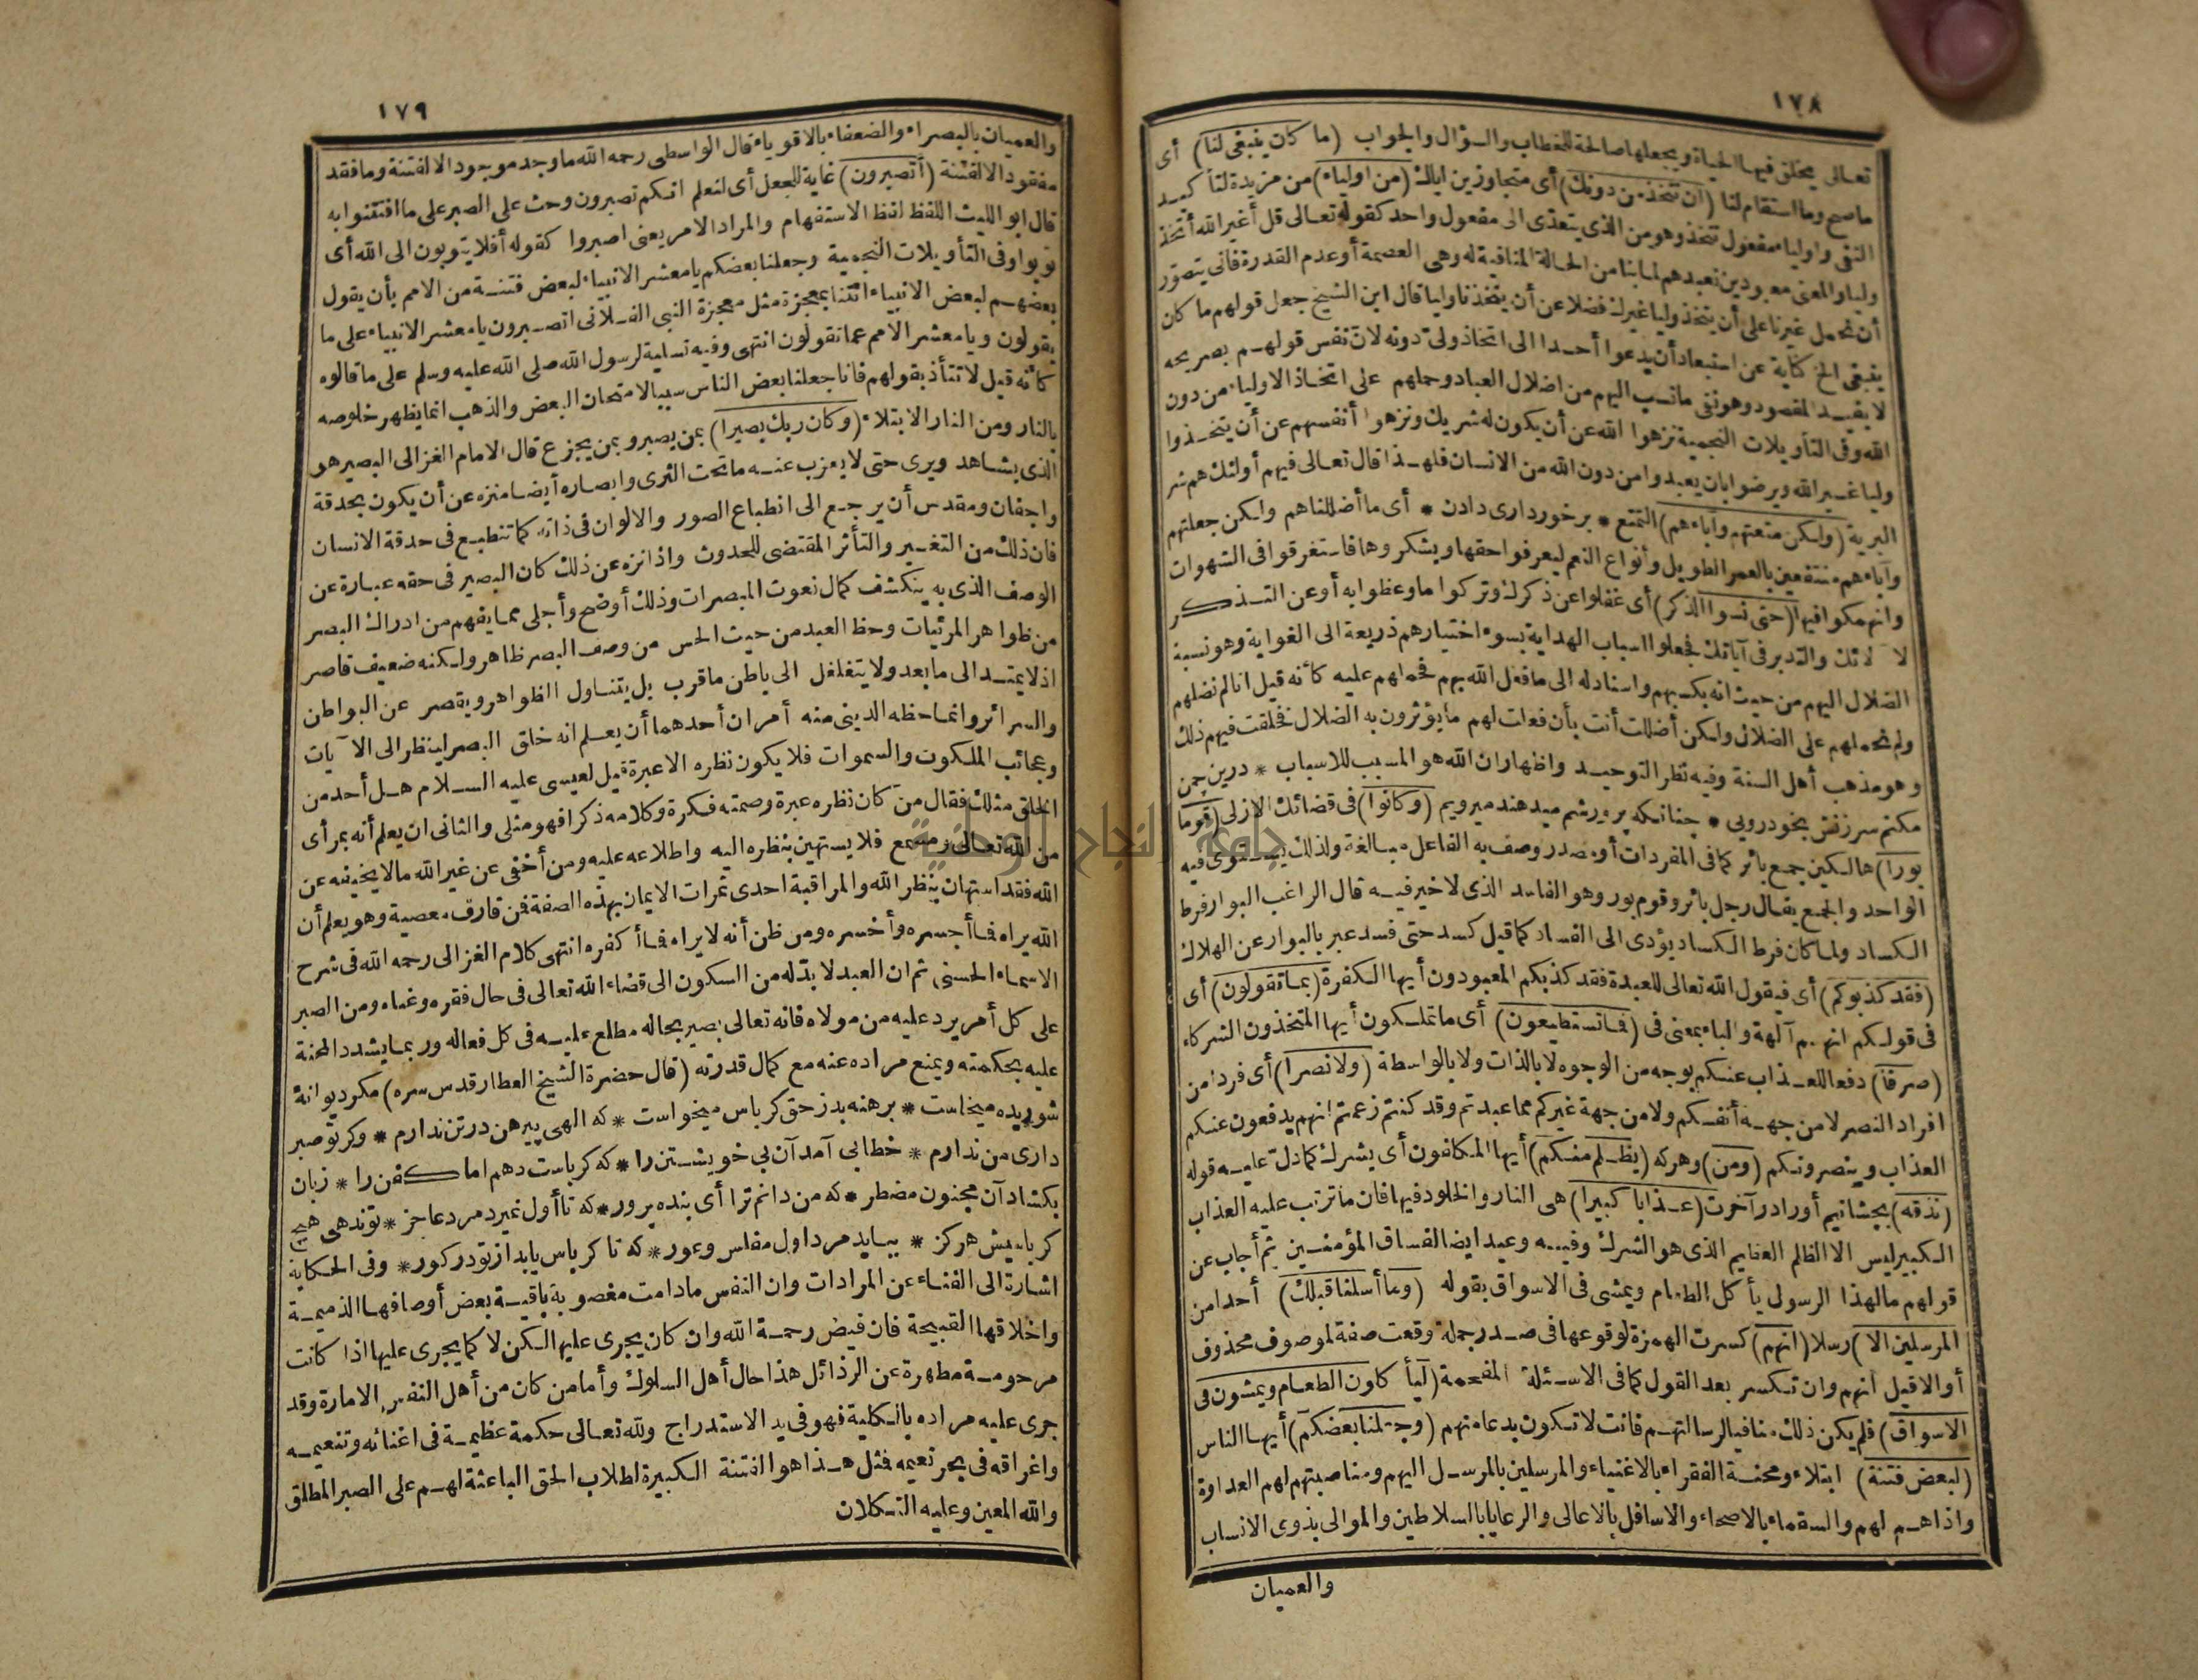 ١٧٨
تعالى يخلق فيها الحياة ويجعلها صالحة للخطاب والسؤال والجواب (ما كان ينبغى لنا) أى
ماصح وما استقام لنا (ان نتخذ من دونك) أى متجاوزين اياك (من اولياء) من مزيدة لتأكيد
النفى واوليا مفعول نتخذ وهو من الذى يتعدى الى مفعول واحد كقوله تعالى قل أغير الله أتخذ
وليا والمعنى معبودين نعبدهم لما بنا من الحالة المنافية له وهى العصمة أو عدم القدرة فانى يتصور
أن نحمل غيرنا على أن يتخذ وليا غيرك فضلا عن أن يتخذنا وليا قال ابن الشيخ جعل قولهم ما كان
ينبغى الخ كناية عن استبعاد أن يدعوا أحدا الى اتخاذ ولى دونه لان نفس قولهم بصريحه
لا يفيد المقصود وهو نفى ما نسب اليهم من اضلال العباد وحملهم على اتخاذ الاولياء من دون
الله وفى التأويلات النجمية نزهوا الله عن أن يكون له شريك ونزهوا أنفسهم عن أن يتخذوا
وليا غير الله ويرضوا بان يعبدوا من دون الله من الانسان فلهذا قال تعالى فيهم أولئك هم شر
البرية (ولكن متعتهم وآباءهم) التمتع * برخوردارى دادن * أى ما أضللناهم ولكن جعلتهم
وآباءهم منتفعين بالعمر الطويل وأنواع النعم ليعرفوا حقها ويشكروها فاستغرقوا فى الشهوات
وانهمكوا فيها (حتى نسوا الذكر) أى غفلوا عن ذكرك وتركوا ما وعظوا به أو عن التذكر
لآلائك والتدبر فى آياتك فجعلوا اسباب الهداية بسوء اختيارهم ذريعة الى الغواية وهو نسبة
الضلال اليهم من حيث انه بكسبهم واسناد له الى ما فعل الله بهم فحملهم عليه كأنه قيل انا لم نضلهم
ولم نحملهم على الضلال ولكن أضللت أنت بأن فعلت لهم ما يؤثرون به الضلال فخلقت فيهم ذلك
وهو مذهب أهل السنة وفيه نظر التوحيد واظهار ان الله هو المسبب للاسباب * درين چمن
مكنم سرزنش بخودرويى * چنانكه پرورشم ميدهند ميرويم (وكانوا) فى قضائك الازلى (قوما
بورا) هالكين جمع بائر كما فى المفردات أو مصدر وصف به الفاعل مبالغة ولذلك يستوى فيه
الواحد والجمع يقال رجل بائر وقوم بور وهو الفاسد الذى لا خير فيه قال الراغب البوار فرط
الكساد ولما كان فرط الكساد يؤدى الى الفساد كما قيل كسد حتى فسد عبر بالبوار عن الهلاك
(فقد كذبوكم) أى فيقول الله تعالى للعبدة فقد كذبكم المعبودون أيها الكفرة (بما تقولون) أى
فى قولكم انهم آلهة والباء بمعنى فى (فما تستطيعون) أى ما تملكون أيها المتخذون الشركاء
(صرفا) دفعا للعذاب عنكم بوجه من الوجوه لا بالذات ولا بالواسطة (ولا نصرا) أى فردا من
افراد النصر لا من جهة أنفسكم ولا من جهة غيركم مما عبدتم وقد كنتم زعمتم انهم يدفعون عنكم
العذاب وينصرونكم (ومن) وهركه (يظلم منكم) أيها المكلفون أى يشرك كما دل عليه قوله
(نذقه) بچشانيم أورا در آخرت (عذابا كبيرا) هى النار والخلود فيها فان ما ترتب عليه العذاب
الكبير ليس الا الظلم العظيم الذى هو الشرك وفيه وعيد ايضا لفساق المؤمنين ثم أجاب عن
قولهم ما لهذا الرسول يأكل الطعام ويمشى فى الاسواق بقوله (وما أرسلنا قبلك) أحدا من
المرسلين الا) رسلا (انهم) كسرت الهمزة لوقوعها فى صدر جملة وقعت صفة لموصوف محذوف
أو الا قيل انهم وان تكسر بعد القول كما فى الاسئلة المقحمة (ليأكلون الطعام ويمشون فى
الاسواق) فلم يكن ذلك منافيا لرسالتهم فانت لا تكون بدعا منهم (وجعلنا بعضكم) أيها الناس
(لبعض فتنة) ابتلاء ومحنة الفقراء بالاغنياء والمرسلين بالمرسل اليهم ومناصبتهم لهم العداوة
واذاهم لهم والسقماء بالاصحاء والاسافل بالاعالى والرعايا بالسلاطين والموالى بذوى الانساب
والعميان
١٧٩
والعميان بالبصراء والضعفاء بالاقوياء قال الواسطى رحمه الله ما وجد موجود الا لفتنة وما فقد
مفقود الا لفتنة (أتصبرون) غاية للجعل أى لنعلم انكم تصبرون وحث على الصبر على ما افتتنوا به
قال ابو الليث اللفظ لفظ الاستفهام والمراد الامر يعنى اصبروا كقوله أفلا يتوبون الى الله أى
توبوا وفى التأويلات النجمية وجعلنا بعضكم يا معشر الانبياء لبعض فتنة من الامم بأن يقول
بعضهم لبعض الانبياء ائتنا بمعجزة مثل معجزة النبى الفلانى اتصبرون يا معشر الانبياء على ما
يقولون ويا معشر الامم عما تقولون انتهى وفيه تسلية لرسول الله صلى الله عليه وسلم على ما قالوه
كأنه قيل لا تتأذ بقولهم فانا جعلنا بعض الناس سببا لامتحان البعض والذهب انما يظهر خلوصه
بالنار ومن النار الابتلاء (وكان ربك بصيرا) بمن يصبر وبمن يجزع قال الامام الغزالى البصير هو
الذى يشاهد ويرى حتى لا يعزب عنه ما تحت الثرى وابصاره أيضا منزه عن أن يكون بحدقة
واجفان ومقدس أن يرجع الى انطباع الصور والالوان فى ذاته كما تنطبع فى حدقة الانسان
فان ذلك من التغير والتأثر المقتضى للحدوث واذا نزه عن ذلك كان البصير فى حقه عبارة عن
الوصف الذى به ينكشف كمال نعوت المبصرات وذلك أوضح وأجلى مما يفهم من ادراك البصر
من ظواهر المرئيات وحظ العبد من حيث الحس من وصف البصر ظاهر ولكنه ضعيف قاصر
اذ لا يمتد الى ما بعد ولا يتغلغل الى باطن ما قرب بل يتناول الظواهر ويقصر عن البواطن
والسرائر وانما حظه الدينى منه أمران أحدهما أن يعلم انه خلق البصر لينظر الى الآيات
وعجائب الملكوت والسموات فلا يكون نظره الا عبرة قيل لعيسى عليه السلام هل أحد من
الخلق مثلك فقال من كان نظره عبرة وصمته فكرة وكلامه ذكرا فهو مثلى والثانى ان يعلم أنه بمرأى
من الله تعالى ومسمع فلا يستهين بنظره اليه واطلاعه عليه ومن أخفى عن غير الله ما لا يخفيه عن
الله فقد استهان بنظر الله والمراقبة احدى ثمرات الايمان بهذه الصفة فمن قارف معصية وهو يعلم أن
الله يراه فما أجسره وأخسره ومن ظن أنه لا يراه فما أكفره انتهى كلام الغزالى رحمه الله فى شرح
الاسماء الحسنى ثم ان العبد لا بد له من السكون الى قضاء الله تعالى فى حال فقره وغناه ومن الصبر
على كل أمر يرد عليه من مولاه فانه تعالى بصير بحاله مطلع عليه فى كل فعاله وربما يشدد المحنة
عليه بحكمته ويمنع مراده عنه مع كمال قدرته (قال حضرة الشيخ العطار قدس سره) مكر ديوانهٔ
شوريده ميخاست * برهنه بد زحق كرباس ميخواست * كه الهى پيرهن در تن ندارم * وكر تو صبر
دارى من ندارم * خطابى آمد آن بى خويشتن را * كه كرباست دهم اما كفن را * زبان
بكشاد آن مجنون مضطر * كه من دانم ترا أى بنده پرور * كه تا أول نميرد مرد عاجز * تو ندهى هيچ
كرباسيش هركز * ببايد مرد اول مفلس وعور * كه تا كرباس يابد از تو در كور * وفى الحكاية
اشارة الى الفناء عن المرادات وان النفس مادامت مغصوبة باقية بعض أوصافها الذميمة
واخلاقها القبيحة فان فيض رحمة الله وان كان يجرى عليها لكن لا كما يجرى عليها اذا كانت
مرحومة مطهرة عن الرذائل هذا حال أهل السلوك وأما من كان من أهل النفس الامارة وقد
جرى عليه مراده بالكلية فهو فى يد الاستدراج ولله تعالى حكمة عظيمة فى اغنائه وتنعيمه
واغراقه فى بحر نعيمه فمثل هذا هو الفتنة الكبيرة لطلاب الحق الباعثة لهم على الصبر المطلق
والله المعين وعليه التكلان
جامعة النجاح الوطنية